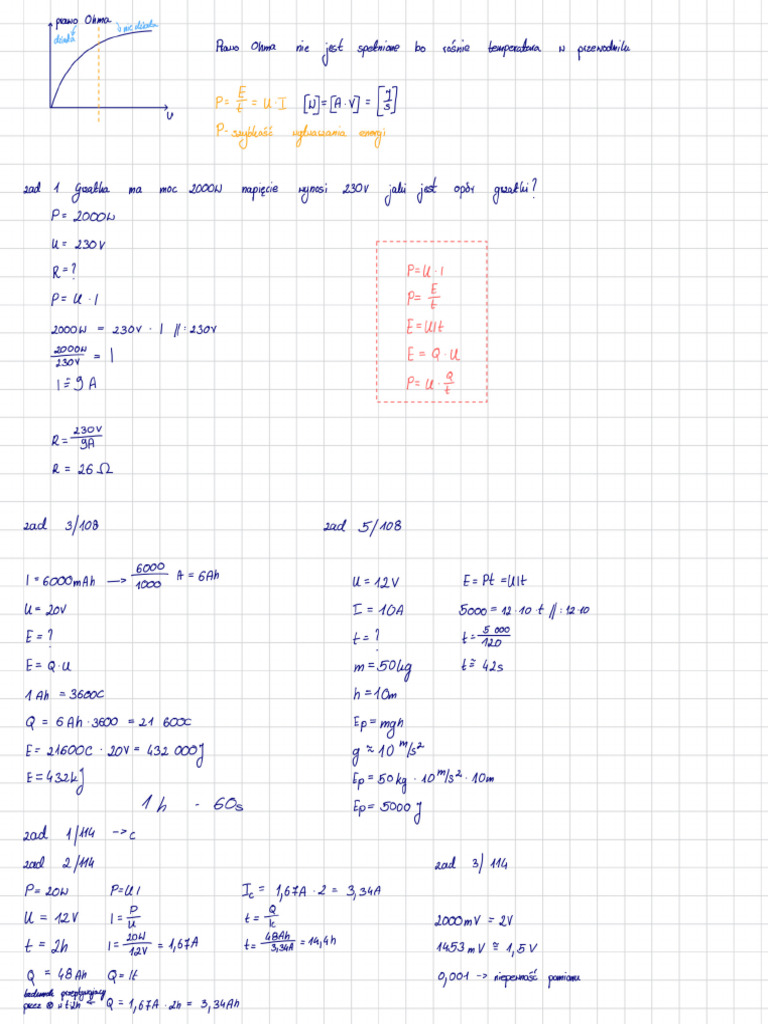 prawo Ohma
działa
nie działa
U
Prawo Ohma nie jest spełnione bo rośnie temperatura w przewodniku
P = E/t = U · I [W] = [A · V] = [J/s]
P - szybkość wydawania energi
zad 1 Grzałka ma moc 2000W napięcie wynosi 230V jaki jest opór grzałki?
P = 2000W
U = 230V
R = ?
P = U · I
2000W = 230V · I //: 230V
2000W/230V = I
I ≈ 9A
R = 230V/9A
R = 26 Ω
P = U · I
P = E/t
E = UIt
E = Q · U
P = U · Q/t
zad 3/108
I = 6000mAh —> 6000/1000 A = 6Ah
U = 20V
E = ?
E = Q · U
1 Ah = 3600C
Q = 6Ah · 3600 = 21 600C
E = 21600C · 20V = 432 000J
E = 432kJ
1 h - 60s
zad 5/108
U = 12V
I = 10A
t = ?
m = 50kg
h = 10m
Ep = mgh
g ≈ 10 m/s²
Ep = 50kg · 10 m/s² · 10m
Ep = 5000J
E = Pt = UIt
5000 = 12 · 10 · t //: 12·10
t = 5 000/120
t ≈ 42s
zad 1/114 -> c
zad 2/114
P = 20W P = UI Ic = 1,67A · 2 = 3,34A
U = 12V I = P/U t = Q/k
t = 2h I = 20W/12V = 1,67A t = 48Ah/3,34A = 14,4h
Q = 48Ah Q = It
ładunek przepływający
przez ⊗ w t=2h Q = 1,67A · 2h = 3,34Ah
zad 3/114
2000mV = 2V
1453mV ≈ 1,5V
0,001 -> niepewność pomiaru